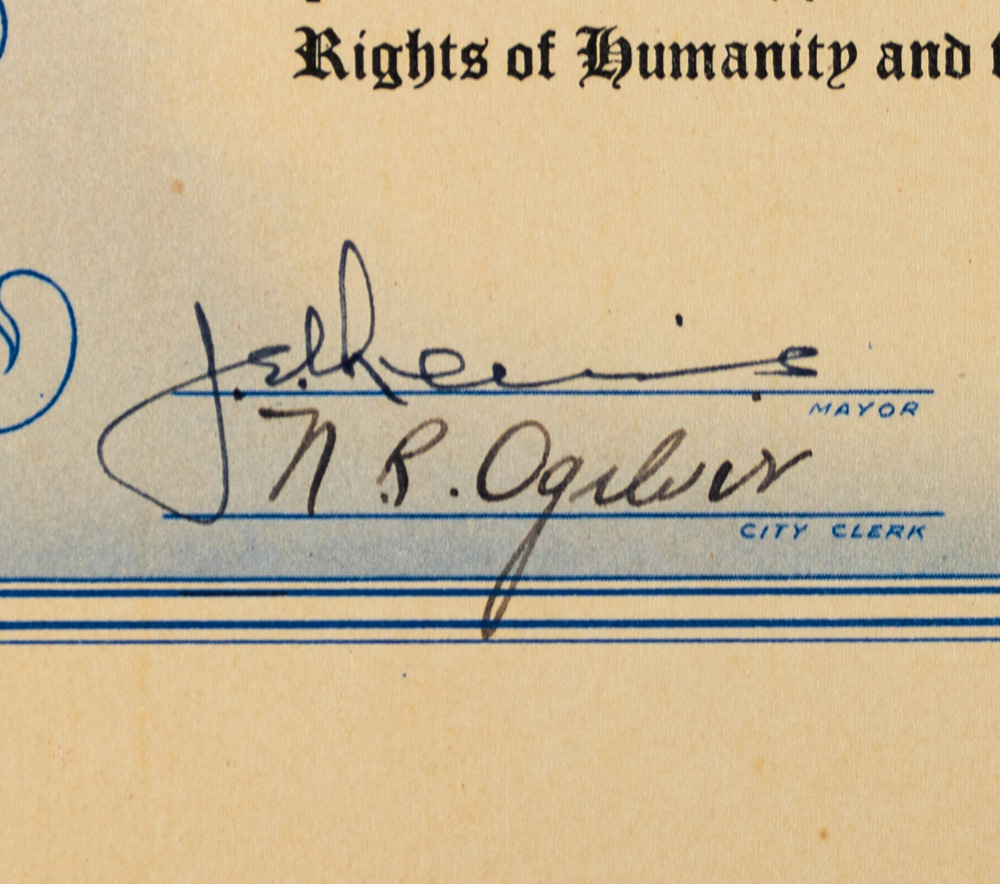 Rights of Humanity and
MAYOR
N. R. Ogilvie
CITY CLERK